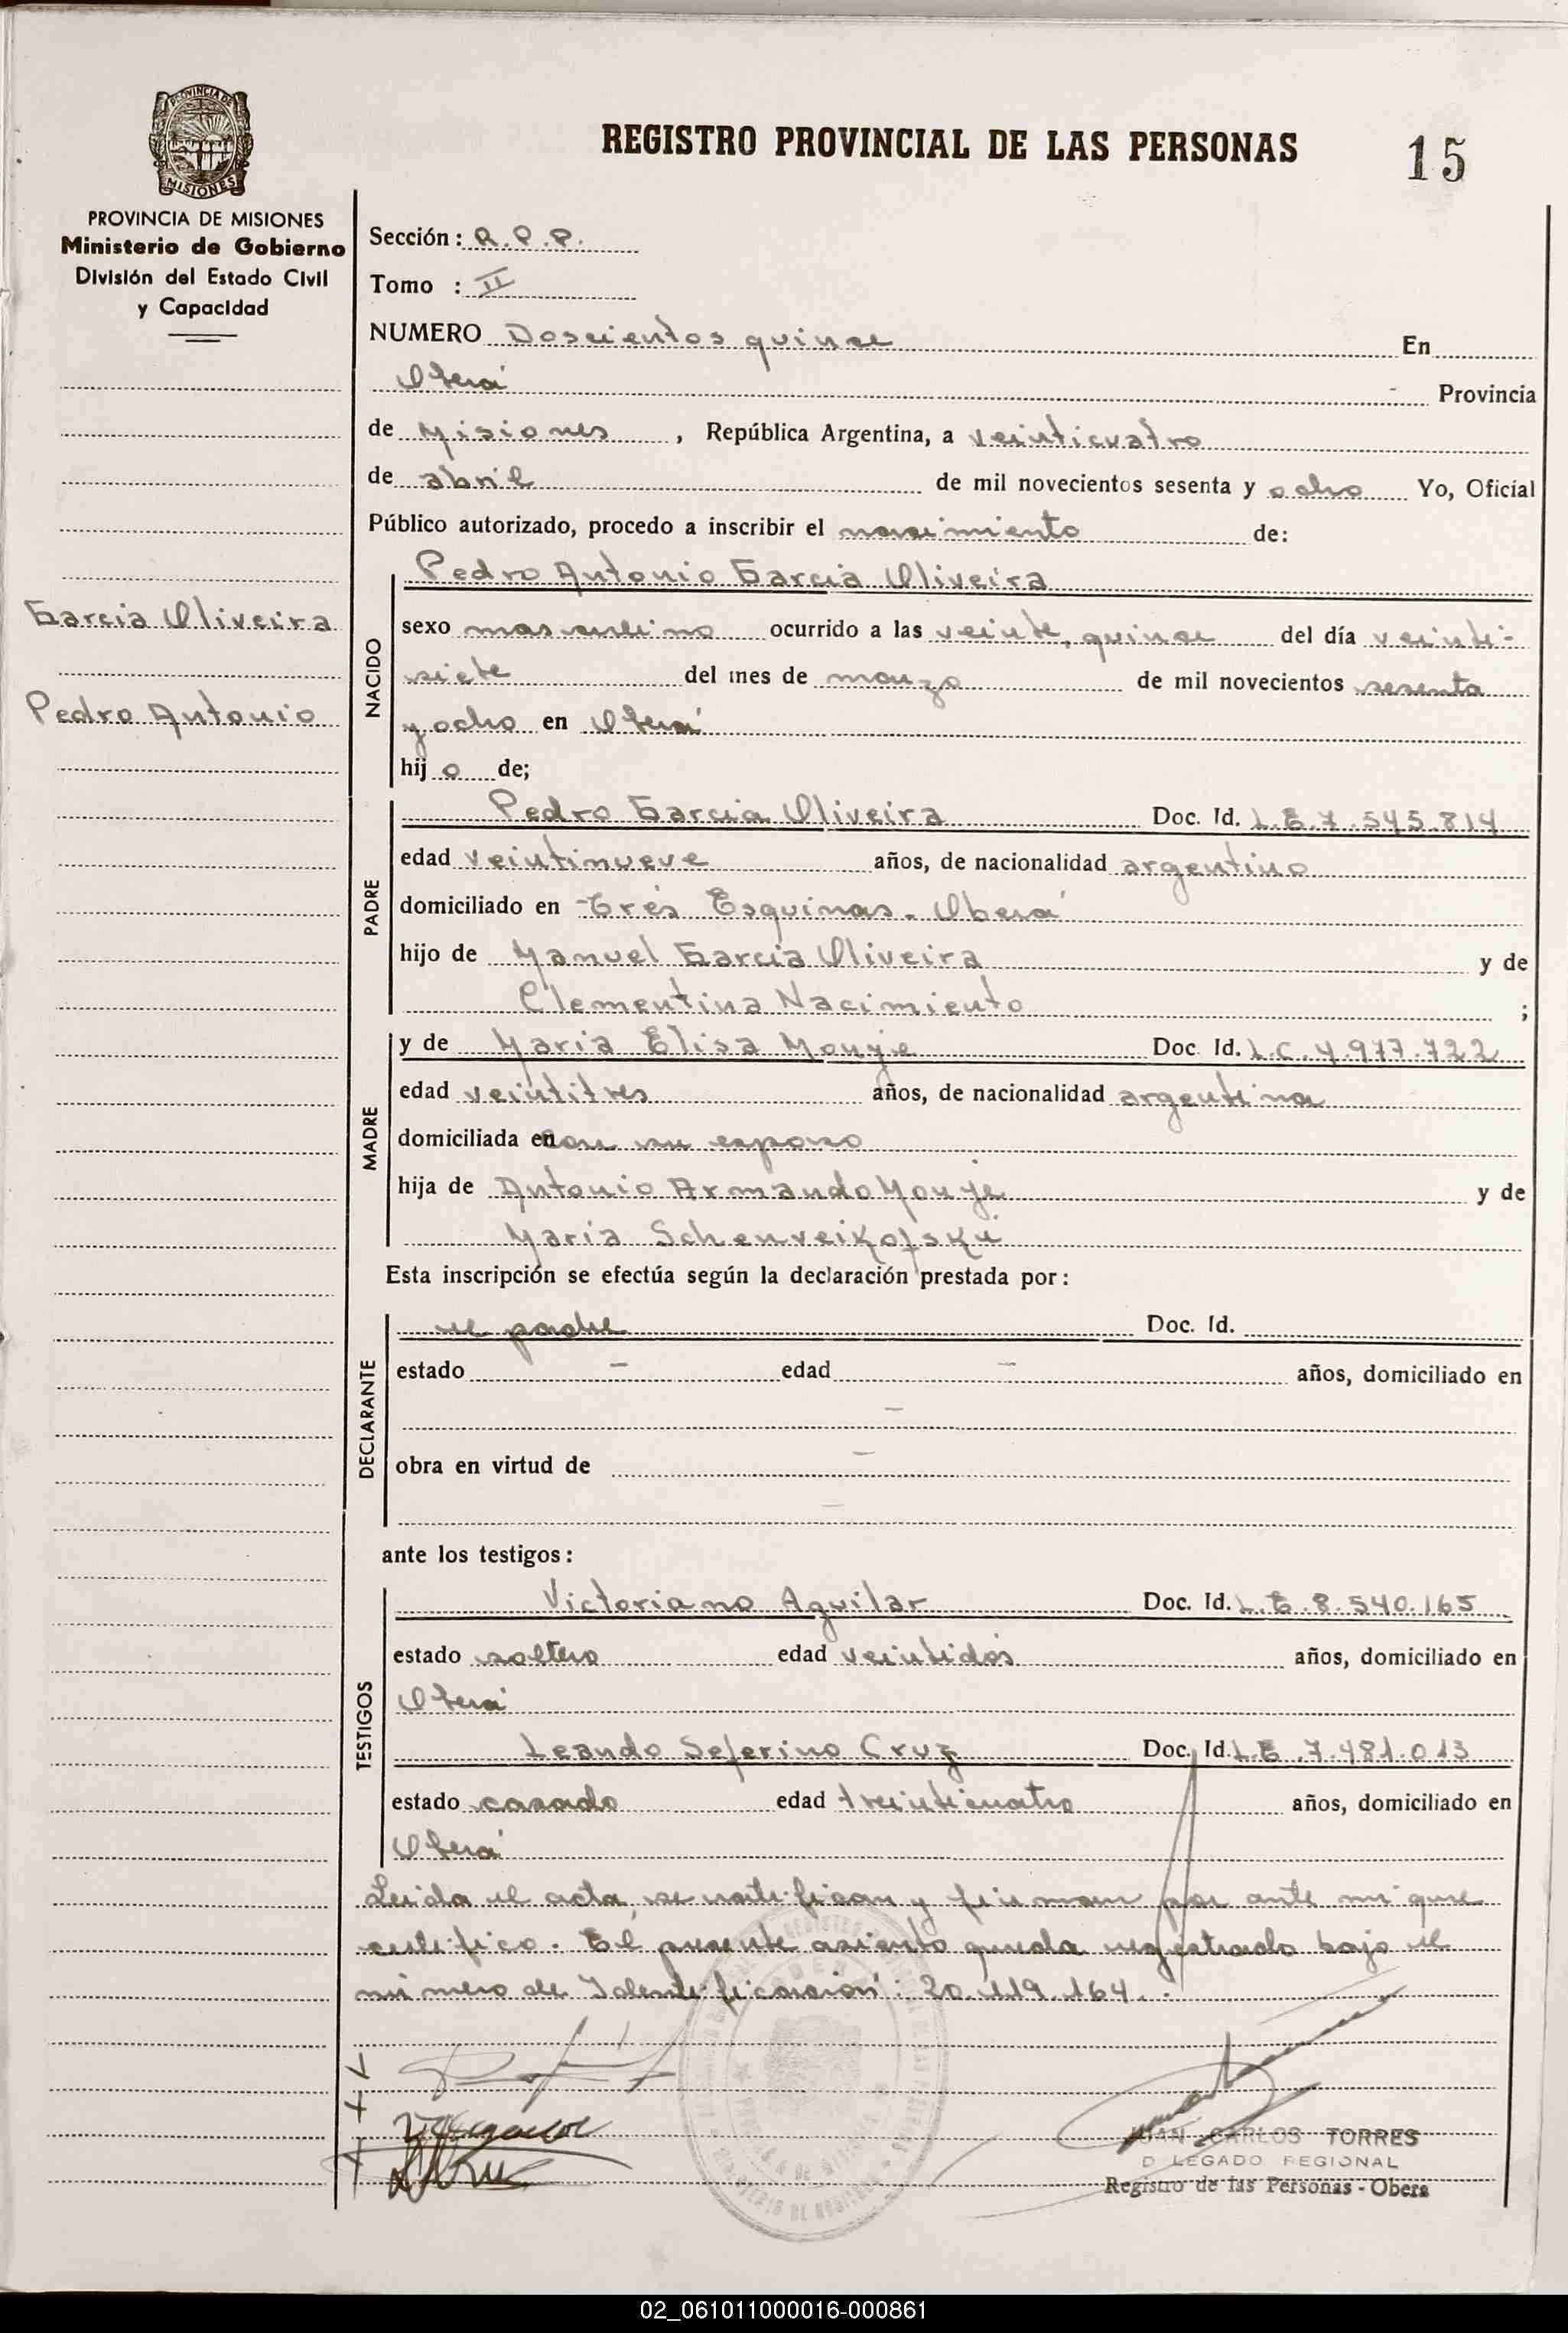 PROVINCIA DE
MISIONES
PROVINCIA DE MISIONES
Ministerio de Gobierno
División del Estado Civil
y Capacidad
REGISTRO PROVINCIAL DE LAS PERSONAS
15
Sección: R.P.P.
Tomo : II
NUMERO Doscientos quince En
Oberá Provincia
de Misiones, República Argentina, a veinticuatro
de abril de mil novecientos sesenta y ocho Yo, Oficial
Público autorizado, procedo a inscribir el nacimiento de:
Garcia Oliveira
Pedro Antonio
NACIDO
Pedro Antonio Garcia Oliveira
sexo masculino ocurrido a las veinte, quince del día veinti-
siete del mes de marzo de mil novecientos sesenta
y ocho en Oberá
hij o de;
PADRE
Pedro Garcia Oliveira Doc. Id. L.E.7.545.814
edad veintinueve años, de nacionalidad argentino
domiciliado en Trés Esquinas. Oberá
hijo de Manuel Garcia Oliveira y de
Clementina Nacimiento ;
MADRE
y de Maria Elisa Monje Doc. Id. L.C.4.977.722
edad veintitres años, de nacionalidad argentina
domiciliada en con su esposo
hija de Antonio Armando Monje y de
Maria Schenveikofski
Esta inscripción se efectúa según la declaración prestada por:
DECLARANTE
el padre Doc. Id.
estado - edad - años, domiciliado en
-
obra en virtud de -
-
ante los testigos:
TESTIGOS
Victoriano Aguilar Doc. Id. L.E.8.540.165
estado soltero edad veintidós años, domiciliado en
Oberá
Leando Seferino Cruz Doc. Id. L.E.7.481.013
estado casado edad treinticuatro años, domiciliado en
Oberá
Leida el acta, se ratifican y firman por ante mi que
certifico. El presente asiento queda registrado bajo el
número de Identificación: 20.119.164.
JUAN CARLOS TORRES
D LEGADO REGIONAL
Registro de las Personas - Obera
02_061011000016-000861